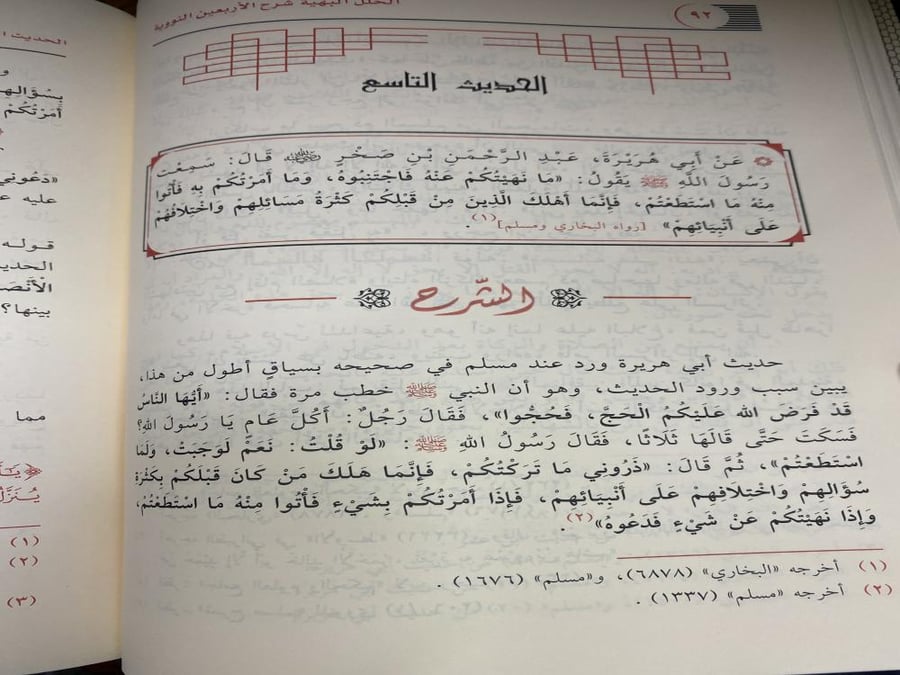 ٩٢
الحلل البهية شرح الأربعين النووية
الحديث التاسع
عَنْ أَبِي هُرَيْرَةَ، عَبْدِ الرَّحْمَنِ بْنِ صَخْرٍ رضي الله عنه قَالَ: سَمِعْتُ
رَسُولَ اللَّهِ ﷺ يَقُولُ: «مَا نَهَيْتُكُمْ عَنْهُ فَاجْتَنِبُوهُ، وَمَا أَمَرْتُكُمْ بِهِ فَأْتُوا
مِنْهُ مَا اسْتَطَعْتُمْ، فَإِنَّمَا أَهْلَكَ الَّذِينَ مِنْ قَبْلِكُمْ كَثْرَةُ مَسَائِلِهِمْ وَاخْتِلَافُهُمْ
عَلَى أَنْبِيَائِهِمْ» [رواه البخاري ومسلم](١).
الشّرح
حديث أبي هريرة ورد عند مسلم في صحيحه بسياقٍ أطول من هذا،
يبين سبب ورود الحديث، وهو أن النبي ﷺ خطب مرة فقال: «أَيُّهَا النَّاسُ
قَدْ فَرَضَ الله عَلَيْكُمُ الْحَجَّ، فَحُجُّوا»، فَقَالَ رَجُلٌ: أَكُلَّ عَامٍ يَا رَسُولَ اللهِ؟
فَسَكَتَ حَتَّى قَالَهَا ثَلَاثًا، فَقَالَ رَسُولُ اللهِ ﷺ: «لَوْ قُلْتُ: نَعَمْ لَوَجَبَتْ، وَلَمَا
اسْتَطَعْتُمْ»، ثُمَّ قَالَ: «ذَرُونِي مَا تَرَكْتُكُمْ، فَإِنَّمَا هَلَكَ مَنْ كَانَ قَبْلَكُمْ بِكَثْرَةِ
سُؤَالِهِمْ وَاخْتِلَافِهِمْ عَلَى أَنْبِيَائِهِمْ، فَإِذَا أَمَرْتُكُمْ بِشَيْءٍ فَأْتُوا مِنْهُ مَا اسْتَطَعْتُمْ،
وَإِذَا نَهَيْتُكُمْ عَنْ شَيْءٍ فَدَعُوهُ»(٢).
(١) أخرجه «البخاري» (٦٨٧٨)، و«مسلم» (١٦٧٦).
(٢) أخرجه «مسلم» (١٣٣٧).
الحديث
بِسُؤَالِهِ
أَمَرْتُكُمْ
«دَعُونِي
عليه
قوله
الحديث
الْأَنْصَ
بينها؟
مما
(١)
(٢)
(٣)